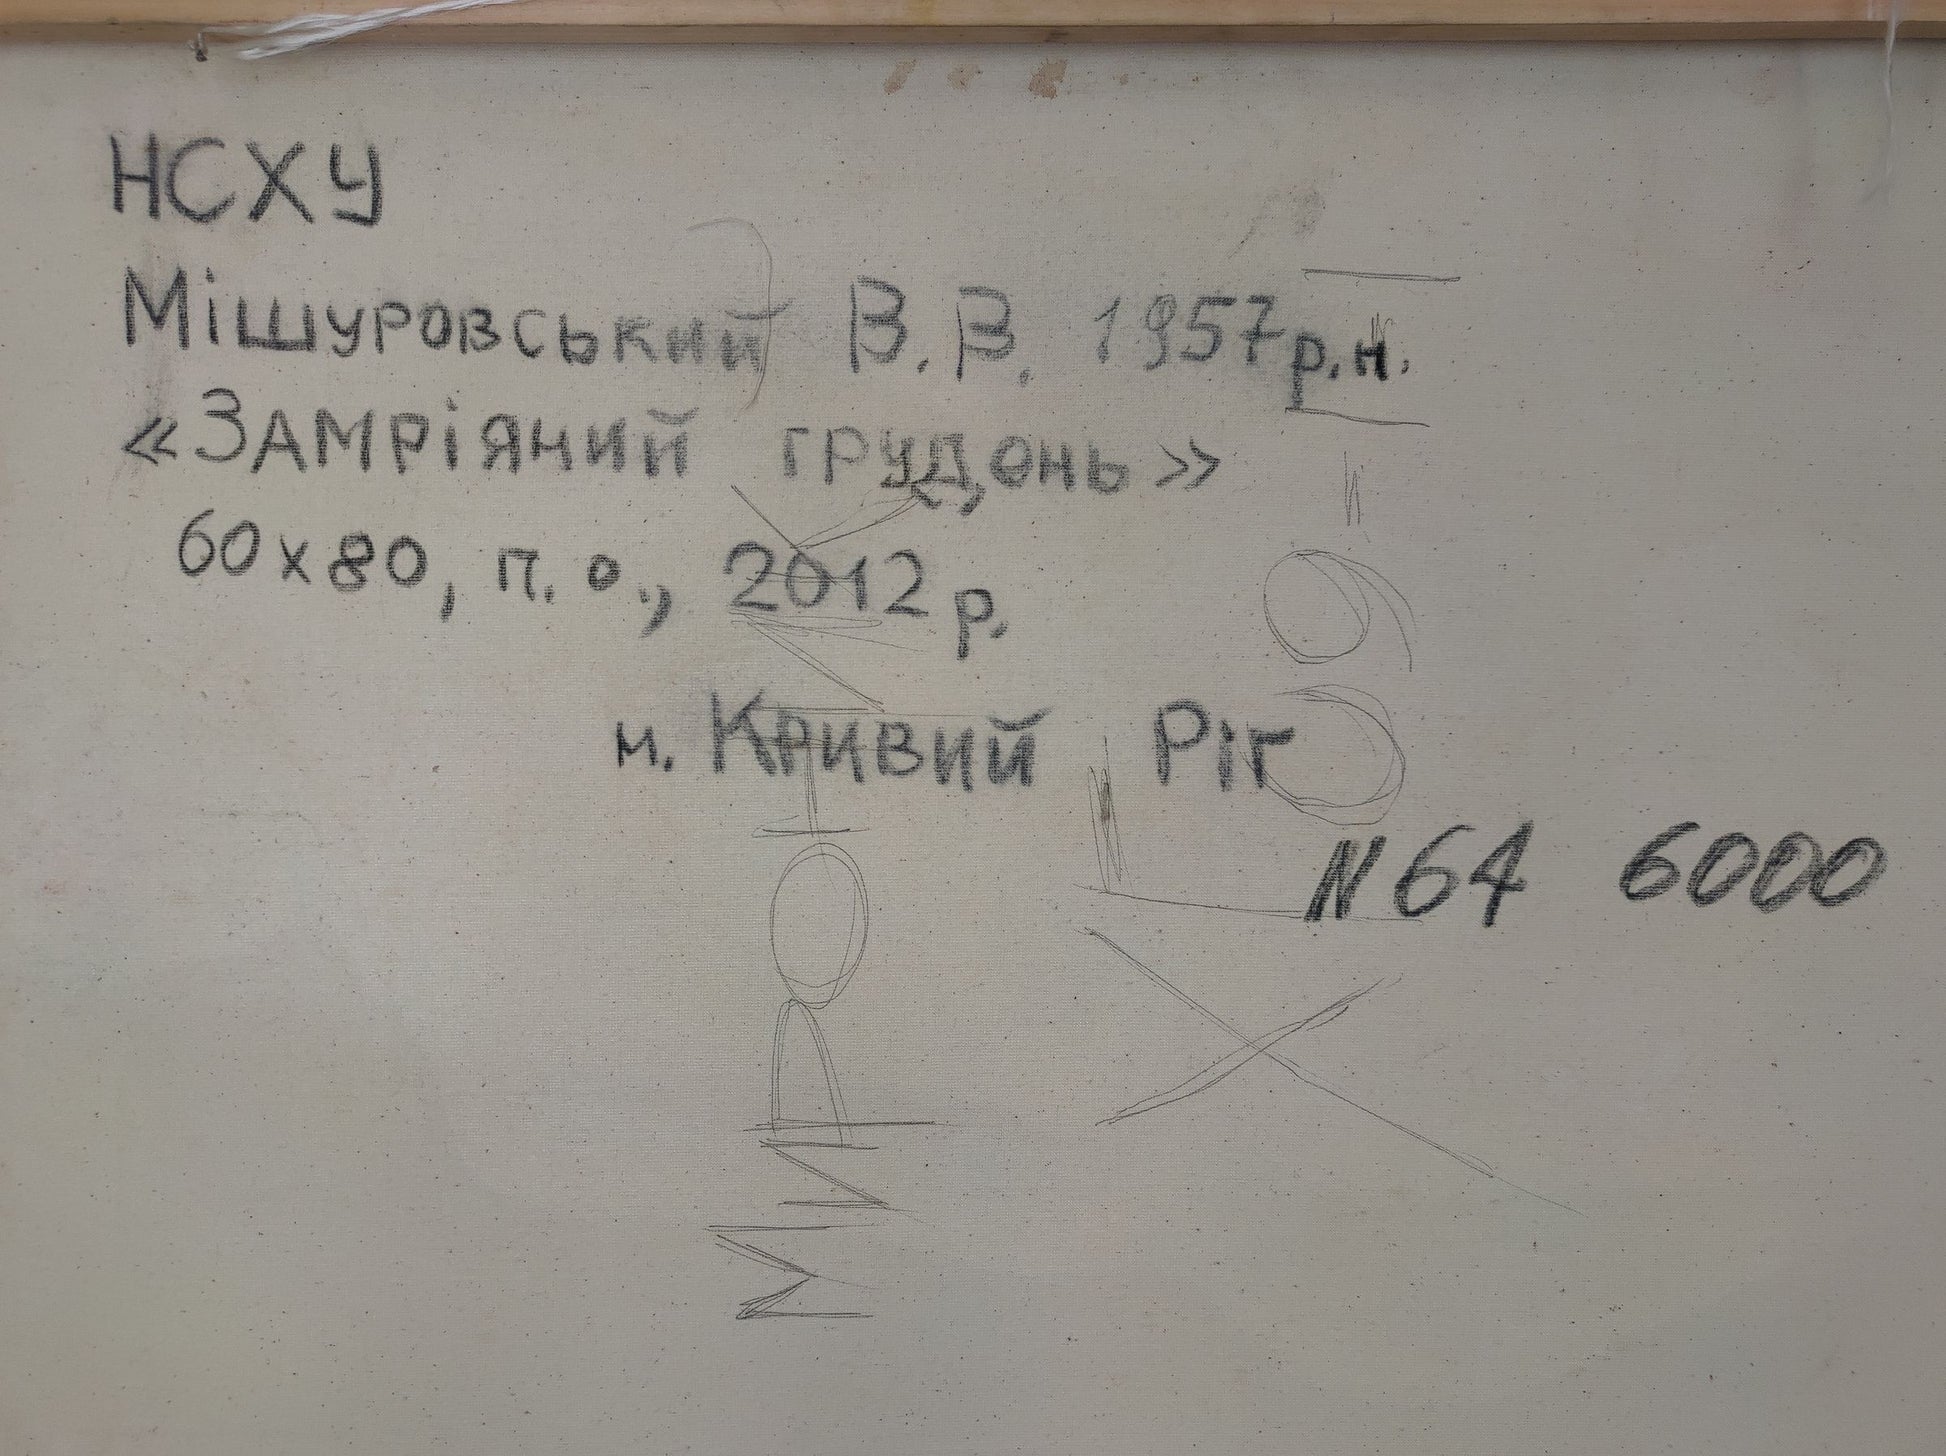 НСХУ
Мішуровський В.В. 1957р.н.
«Замріяний грудонь»
60х80, п.о., 2012р.
м. Кривий Ріг
N64 6000